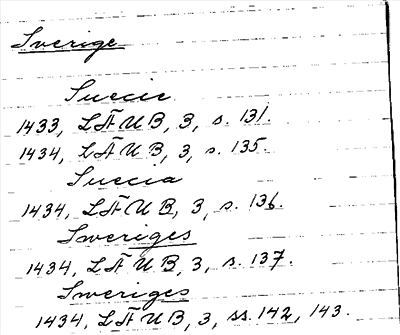 Sverige
Suecie
1433, LÄUB, 3, s. 131.
1434, LÄUB, 3, s. 135.
Suecia
1434, LÄUB, 3, s. 136.
Sweriges
1434, LÄUB, 3, s. 137.
Sweriges
1434, LÄUB, 3, ss. 142, 143.